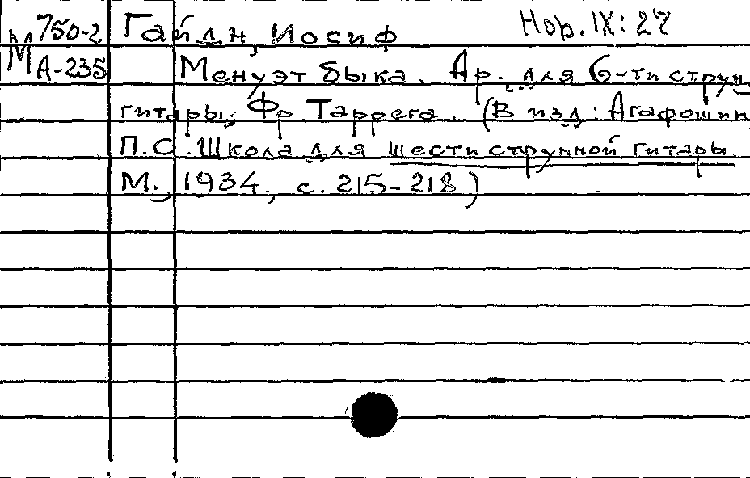 М 750-2 Гайдн, Иосиф Нов. IX: 27
М А-235 Менуэт быка. Ар. для 6-ти струн
гитары, Фр Таррега. (В изд: Агафошин
П.С. Школа для шестиструнной гитары
М., 1934, с. 215-218)